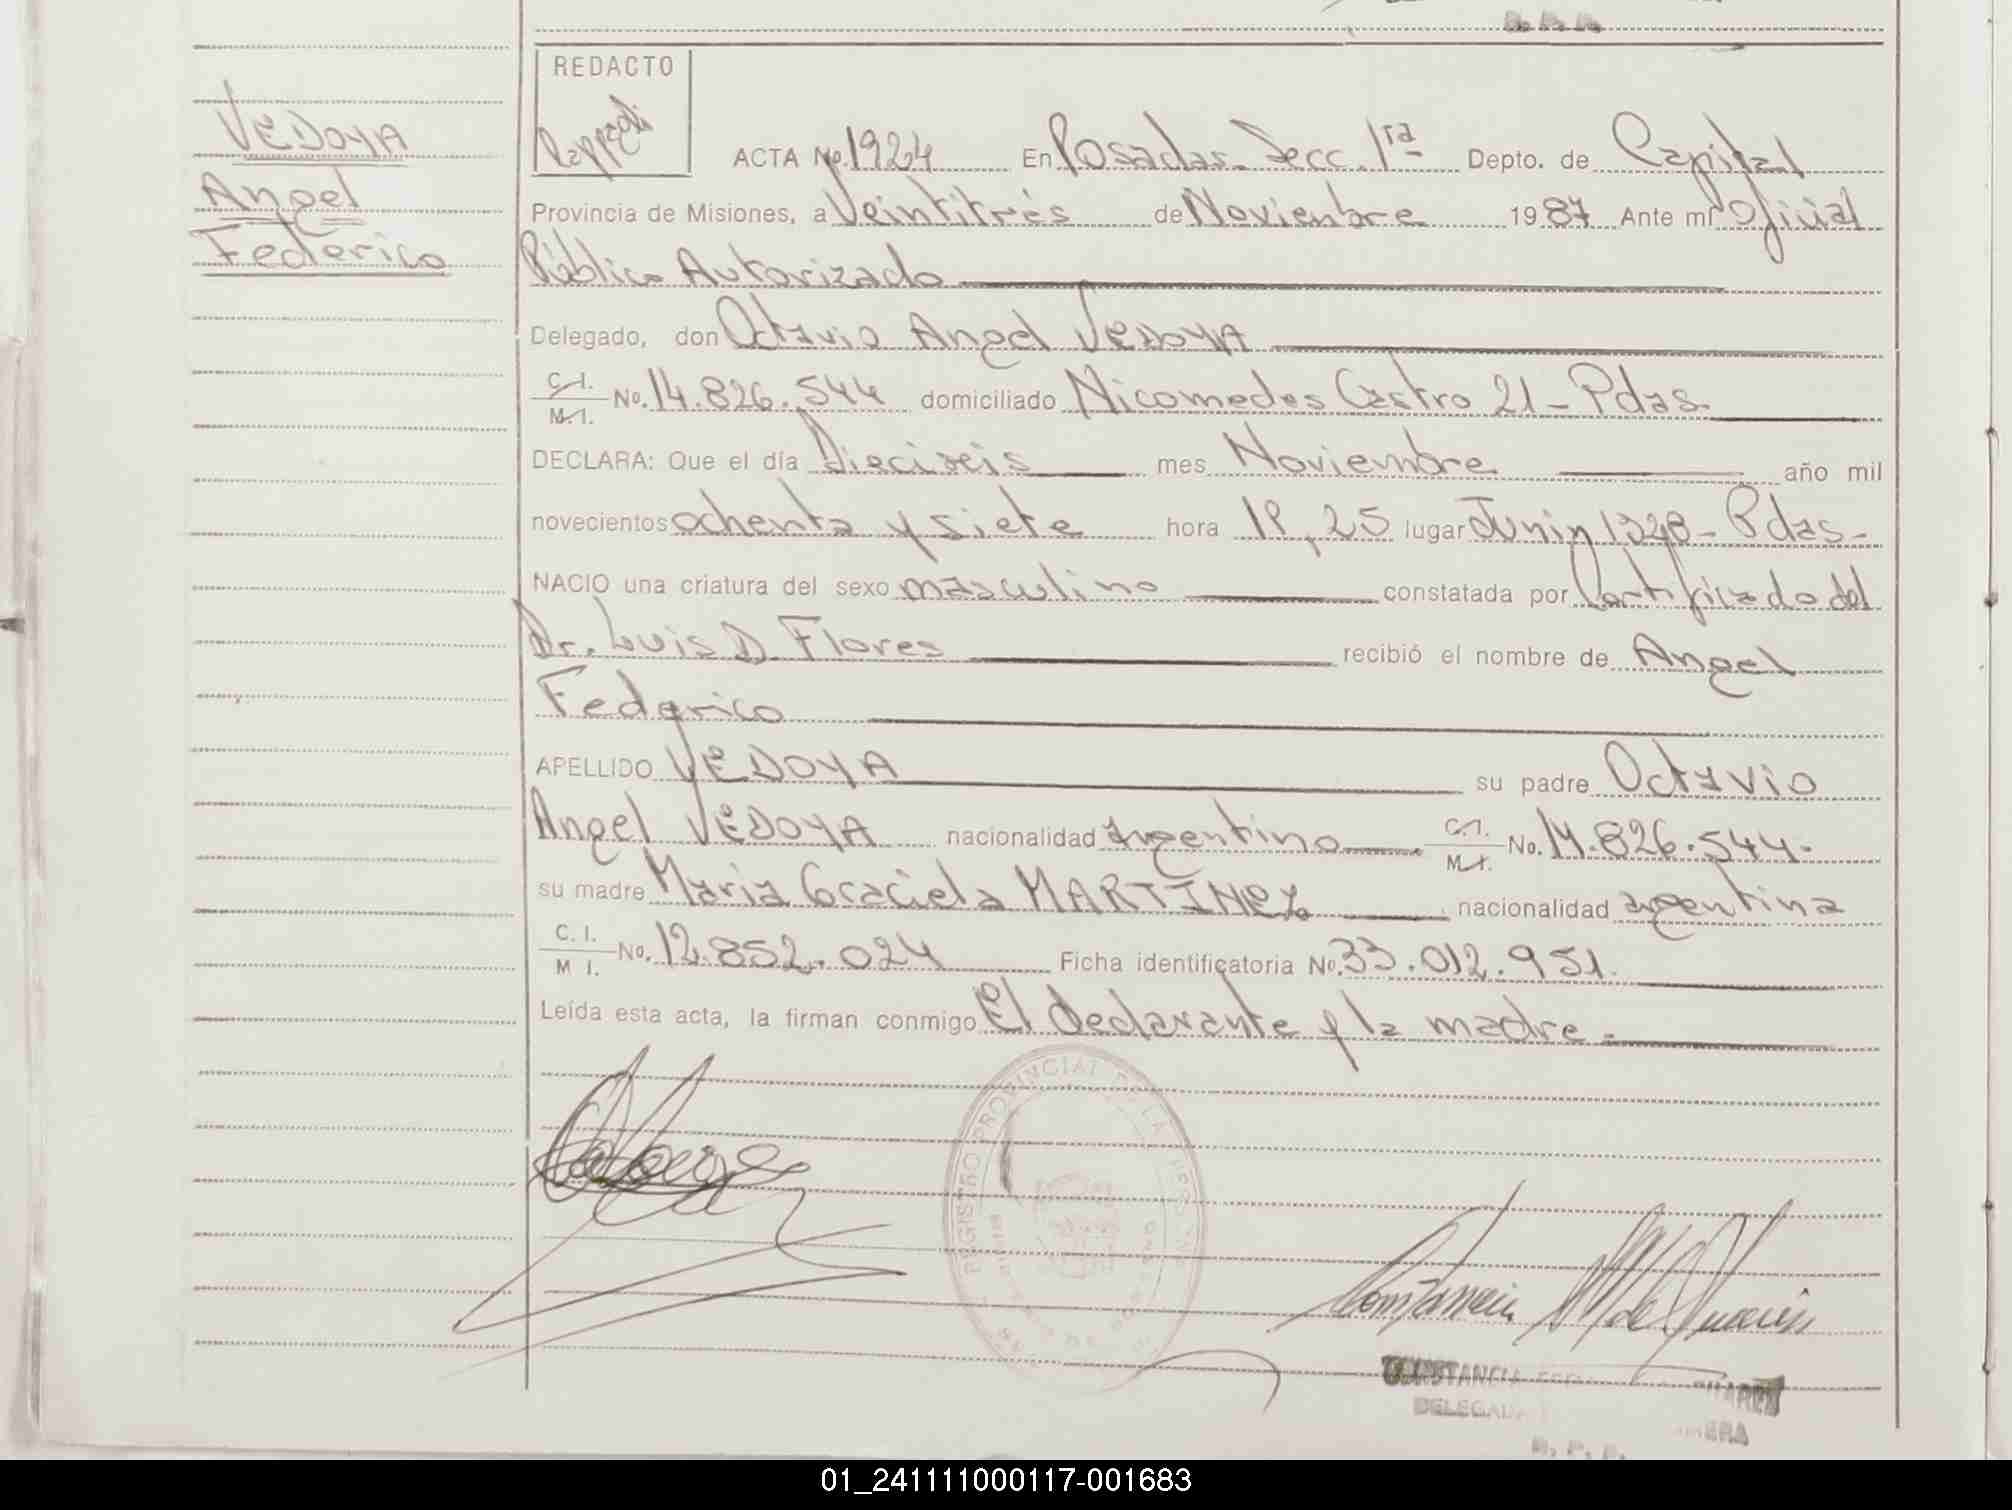 VEDOYA
Angel
Federico
REDACTO
ACTA No. 1924 En Posadas - Secc. 1ra Depto. de Capital
Provincia de Misiones, a Veintitrés de Noviembre 1987 Ante mí Oficial
Público Autorizado
Delegado, don Octavio Angel VEDOYA
C.I. M.I. No. 14.826.544 domiciliado Nicomedes Castro 21 - Pdas.
DECLARA: Que el día Dieciseis mes Noviembre año mil
novecientos ochenta y siete hora 19,25 lugar Junin - Pdas -
NACIO una criatura del sexo masculino constatada por Certificado del
Dr. Luis D. Flores recibió el nombre de Angel
Federico
APELLIDO VEDOYA su padre Octavio
Angel VEDOYA nacionalidad argentino C.I. M.I. No. 14.826.544.
su madre Maria Graciela MARTINEZ nacionalidad argentina
C. I. M I. No. 12.852.024 Ficha identificatoria No. 33.012.951.
Leída esta acta, la firman conmigo El declarante y la madre.
REGISTRO PROVINCIAL DE LAS PERSONAS
CONSTANCIA
DELEGADA
01_241111000117-001683